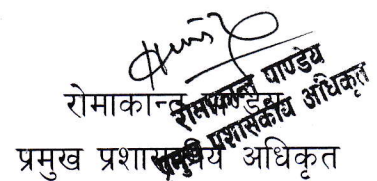 रोमाकान्त पाण्डेय
प्रमुख प्रशासकीय अधिकृत
रोमाकान्त पाण्डेय
प्रमुख प्रशासकीय अधिकृत